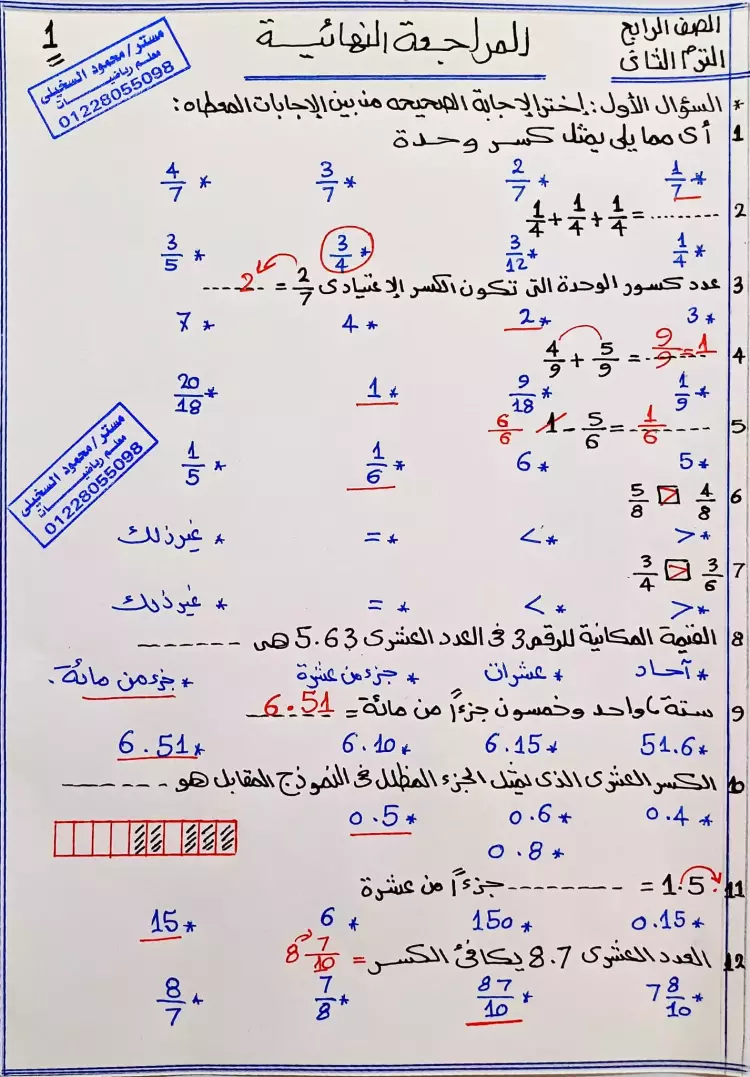 الصف الرابع
الترم الثانى
المراجعة النهائية
1
مستر / محمود السخيلى
معلم رياضيـــــات
01228055098
* السؤال الأول: إختر الإجابة الصحيحه من بين الإجابات المعطاه:
1 أى مما يلى يمثل كسر وحدة
* 1/7 * 2/7 * 3/7 * 4/7
2 1/4 + 1/4 + 1/4 = .........
* 1/4 * 3/12 * 3/4 * 3/5
3 عدد كسور الوحدة التى تكون الكسر الإعتيادى 2/7 = 2
* 3 * 2 * 4 * 7
4 4/9 + 5/9 = 9/9 = 1
* 1/9 * 9/18 * 1 * 20/18
5 6/6 1 - 5/6 = 1/6
* 5 * 6 * 1/6 * 1/5
مستر / محمود السخيلى
معلم رياضيـــــات
01228055098
6 5/8 > 4/8
* > * < * = * غير ذلك
7 3/4 > 3/6
* > * < * = * غير ذلك
8 القيمة المكانية للرقم 3 فى العدد العشرى 5.63 هى -------
* آحاد * عشرات * جزء من عشرة * جزء من مائة.
9 ستة، واحد وخمسون جزءاً من مائة = 6.51
* 51.6 * 6.15 * 6.10 * 6.51
10 الكسر العشرى الذى يمثل الجزء المظلل فى النموذج المقابل هو ------
* 0.4 * 0.6 * 0.5
* 0.8
11 1.5 = --------- جزءاً من عشرة
* 0.15 * 150 * 6 * 15
12 العدد العشرى 8.7 يكافئ الكسر = 8 7/10
* 7 8/10 * 87/10 * 7/8 * 8/7